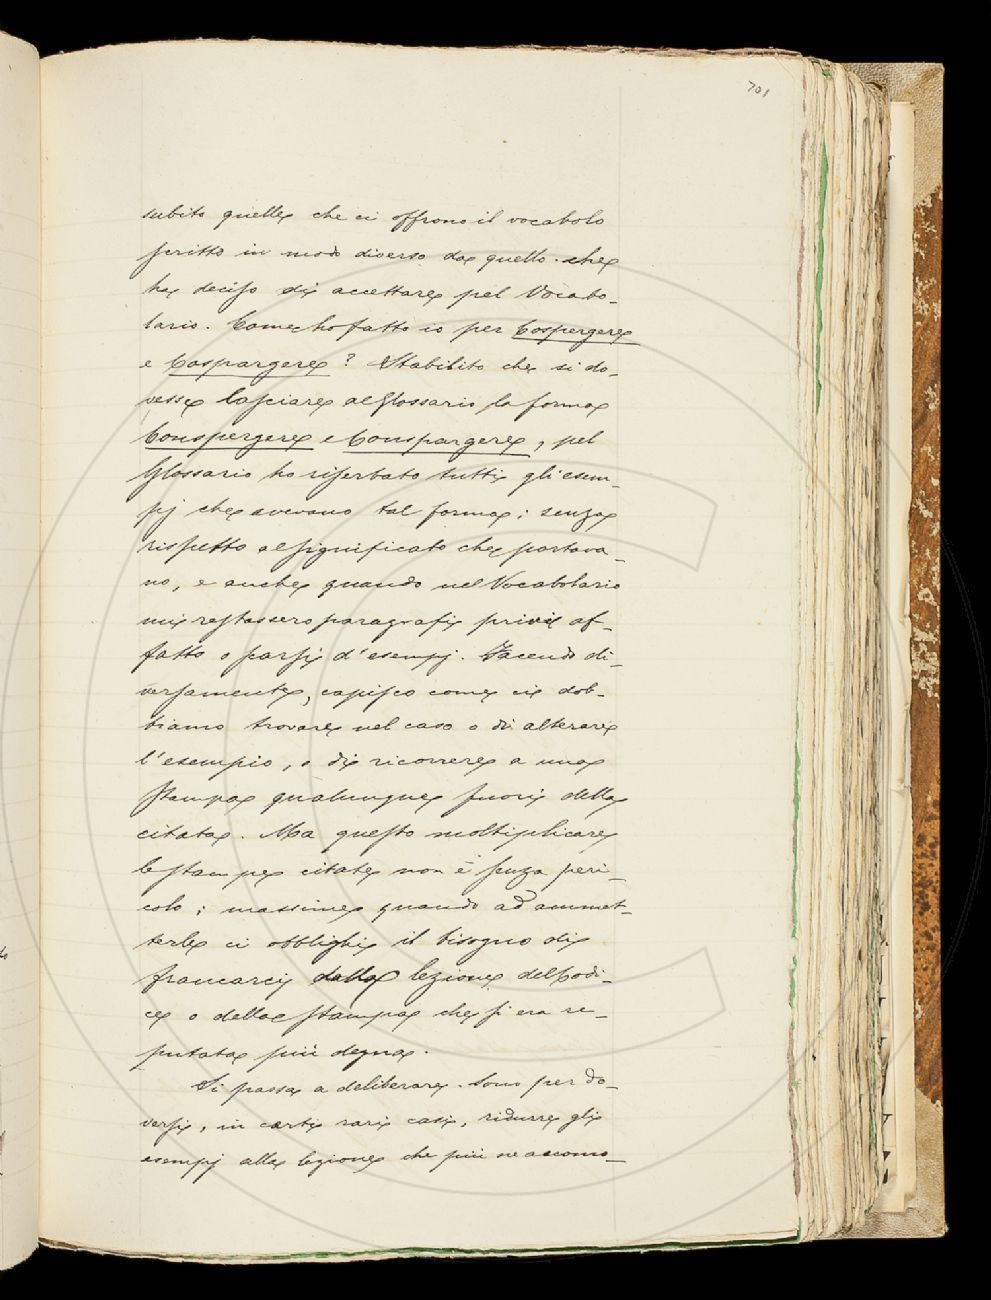 701
subito quelle che ci offrono il vocabolo
scritto in modo diverso da quello che
ha deciso di accettare pel Vocabo-
lario. Come ho fatto io per Cospergere
e Cospargere? Stabilito che si do-
vesse lasciare al Glossario la forma
Conspergere e Conspargere, pel
Glossario ho riserbato tutti gli esem-
pj che avevano tal forma; senza
rispetto al significato che portava-
no, e anche quando nel Vocabolario
mi restassero paragrafi privi af-
fatto o scarsi d'esempj. Facendo di-
versamente, capisco come ci dob-
biamo trovare nel caso o di alterare
l'esempio, o di ricorrere a una
stampa qualunque fuori della
citata. Ma questo moltiplicare
le stampe citate non è senza peri-
colo; massime quando ad ammet-
terle ci obblighi il bisogno di
francarci dalla lezione del Codi-
ce o della stampa che si era re-
putata più degna.
Si passa a deliberare. Sono per do-
versi, in certi rari casi, ridurre gli
esempj alla lezione che più ne accomo-